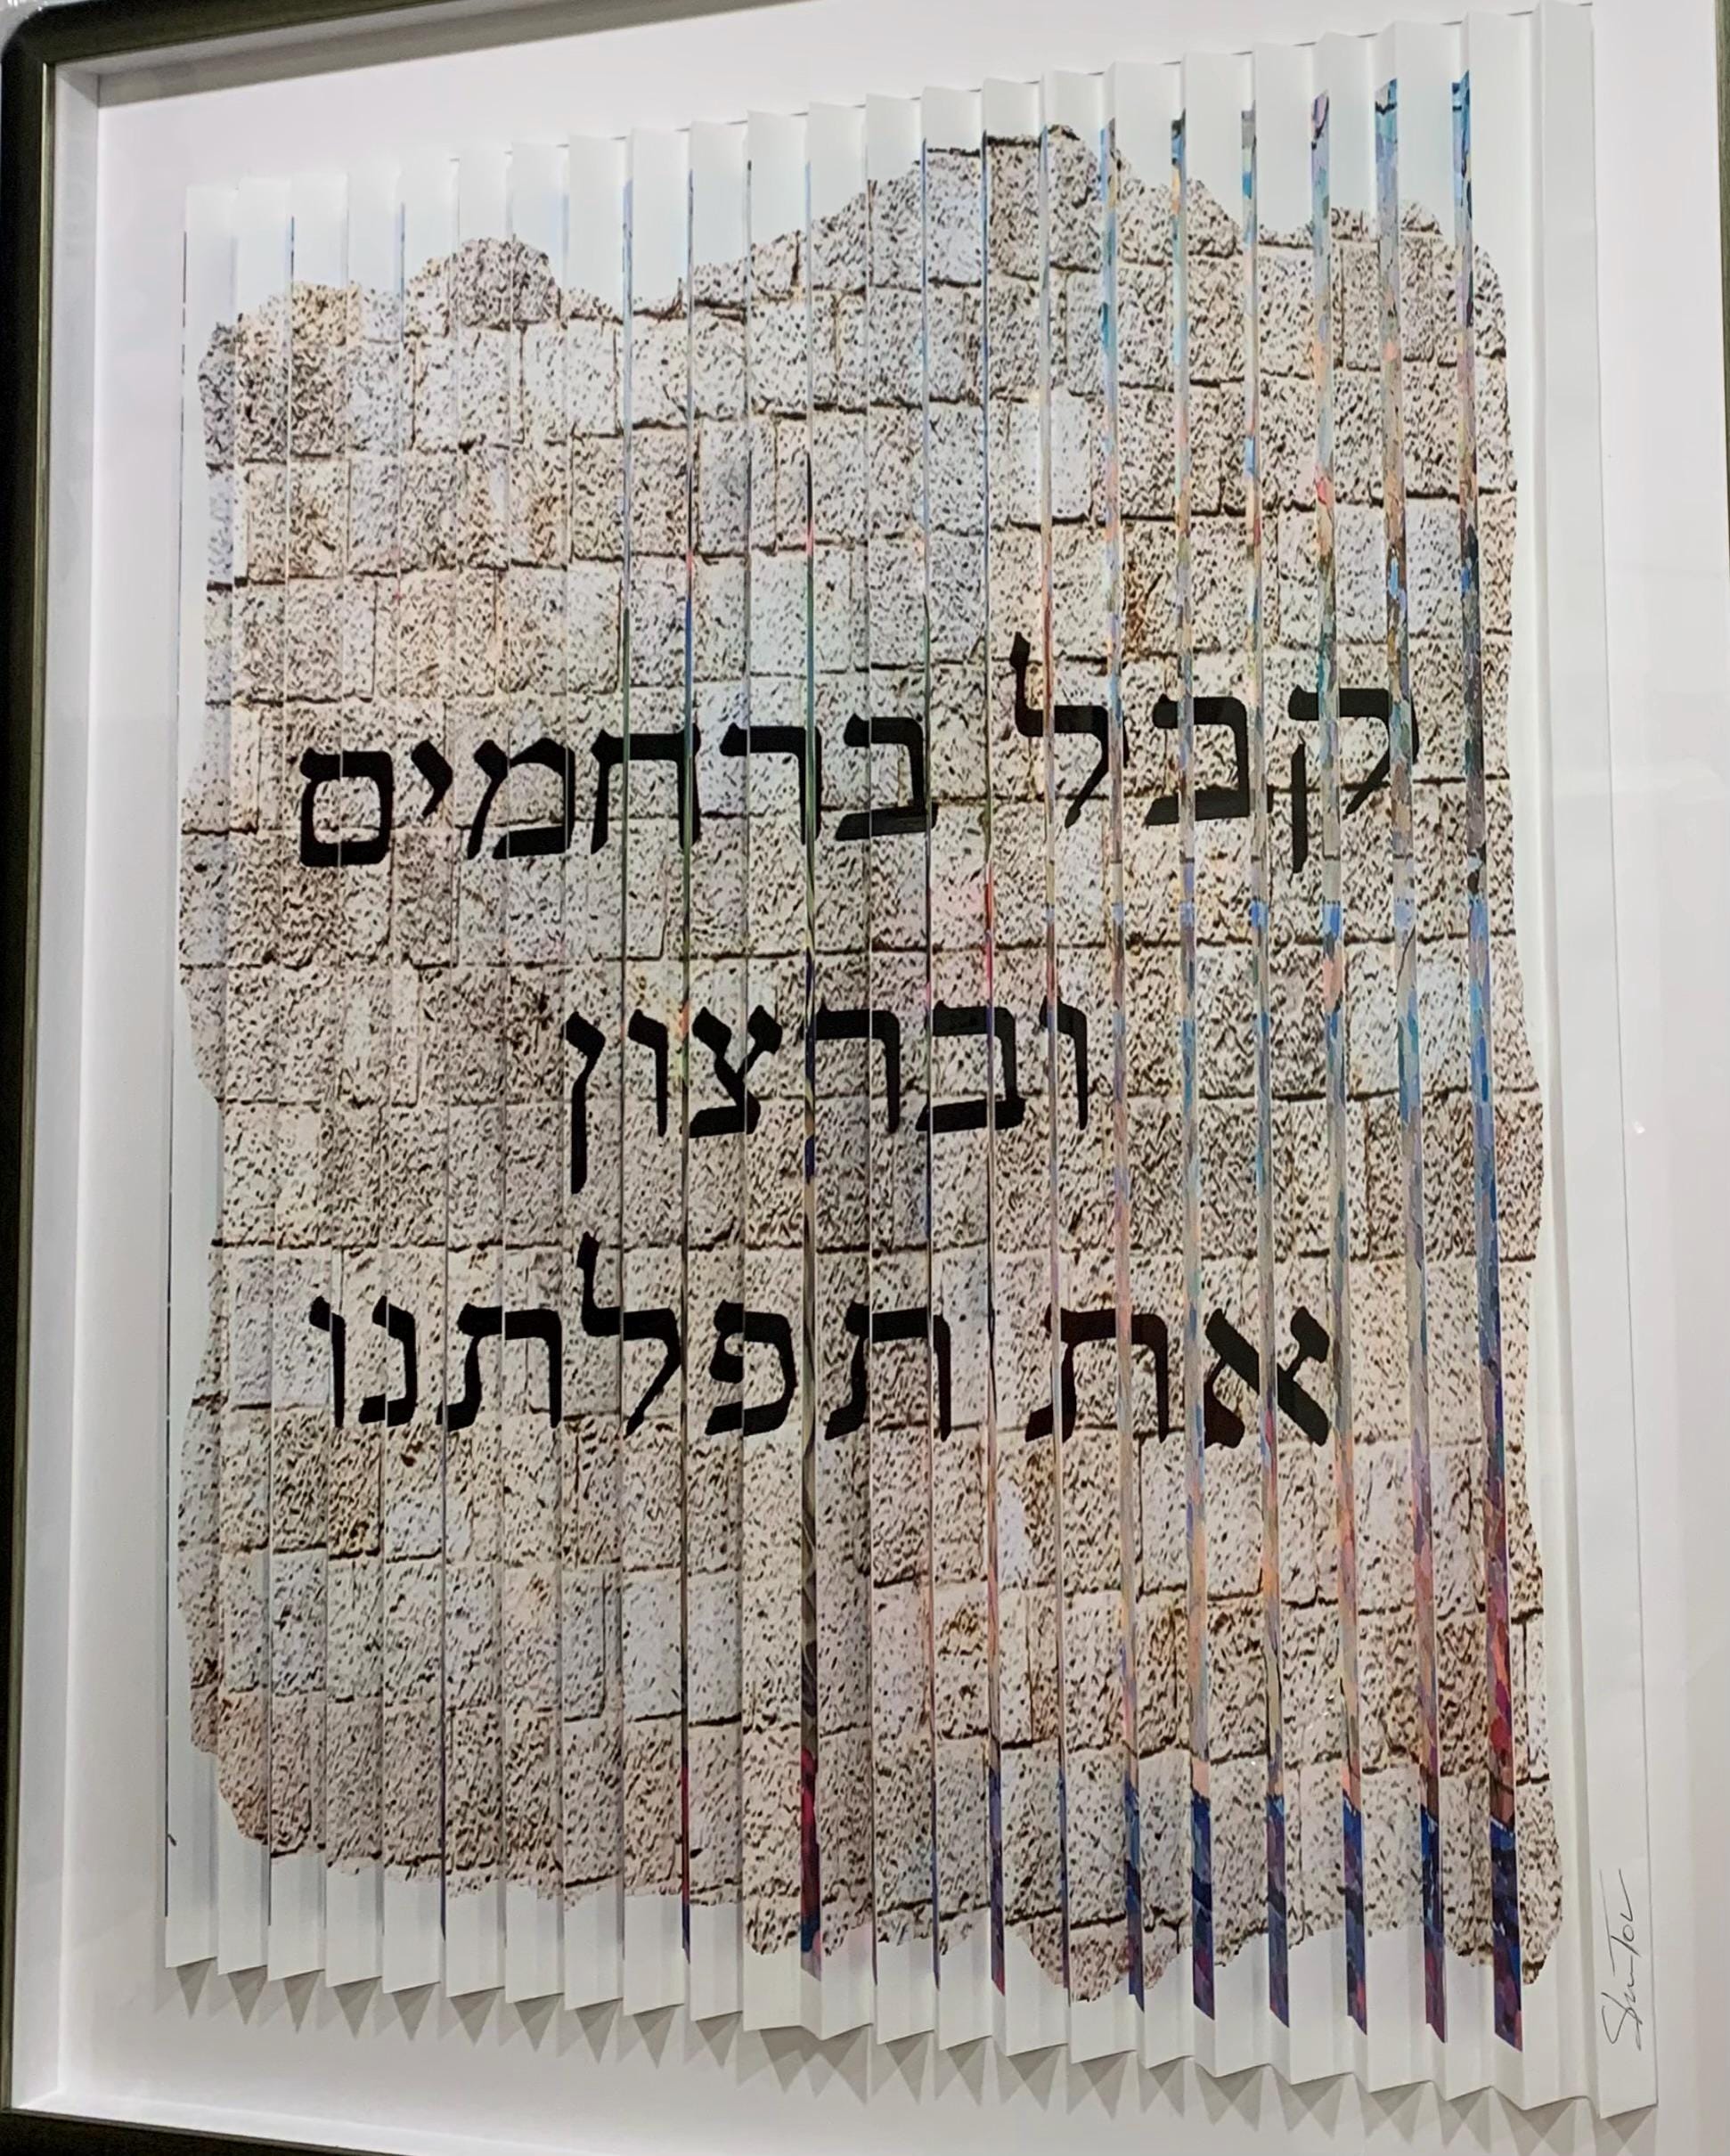 קבל ברחמים
וברצון
את תפלתנו